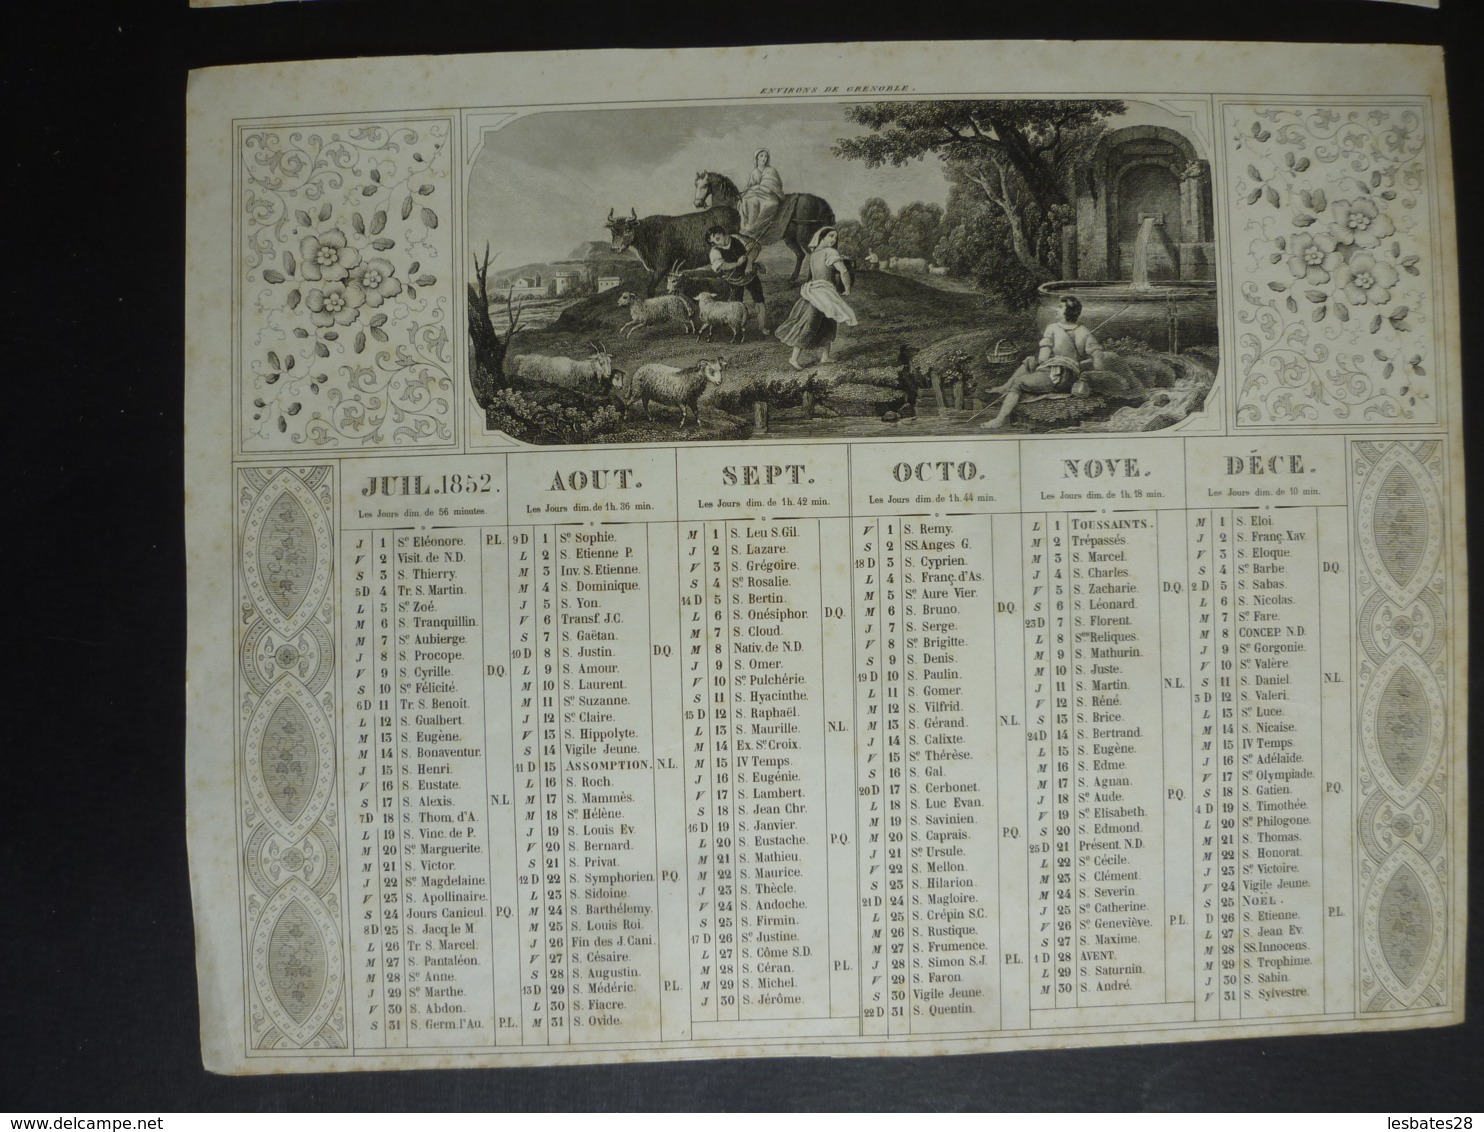 ENVIRONS DE GRENOBLE.
JUIL. 1852.
Les Jours dim. de 56 minutes.
J 1 Se Eléonore. P.L.
V 2 Visit. de N.D.
S 3 S. Thierry.
5D 4 Tr. S. Martin.
L 5 Se Zoé.
M 6 S. Tranquillin.
M 7 Se Aubierge.
J 8 S. Procope.
V 9 S. Cyrille. D.Q.
S 10 Se Félicité.
6D 11 Tr. S. Benoit.
L 12 S. Gualbert.
M 13 S. Eugène.
M 14 S. Bonaventur.
J 15 S. Henri.
V 16 S. Eustate.
S 17 S. Alexis. N.L.
7D 18 S. Thom. d'A.
L 19 S. Vinc. de P.
M 20 Se Marguerite.
M 21 S. Victor.
J 22 Se Magdelaine.
V 23 S. Apollinaire.
S 24 Jours Canicul. P.Q.
8D 25 S. Jacq. le M.
L 26 Tr. S. Marcel.
M 27 S. Pantaléon.
M 28 Se Anne.
J 29 Se Marthe.
V 30 S. Abdon.
S 31 S. Germ. l'Au. P.L.
AOUT.
Les Jours dim. de 1h. 36 min.
9D 1 Se Sophie.
L 2 S. Etienne P.
M 3 Inv. S. Etienne.
M 4 S. Dominique.
J 5 S. Yon.
V 6 Transf. J.C.
S 7 S. Gaëtan.
10D 8 S. Justin. D.Q.
L 9 S. Amour.
M 10 S. Laurent.
M 11 Se Suzanne.
J 12 Se Claire.
V 13 S. Hippolyte.
S 14 Vigile Jeune.
11D 15 ASSOMPTION. N.L.
L 16 S. Roch.
M 17 S. Mammès.
M 18 Se Hélène.
J 19 S. Louis Ev.
V 20 S. Bernard.
S 21 S. Privat.
12D 22 S. Symphorien. P.Q.
L 23 S. Sidoine.
M 24 S. Barthélemy.
M 25 S. Louis Roi.
J 26 Fin des J. Cani.
V 27 S. Césaire.
S 28 S. Augustin.
13D 29 S. Médéric. P.L.
L 30 S. Fiacre.
M 31 S. Ovide.
SEPT.
Les Jours dim. de 1h. 42 min.
M 1 S. Leu S. Gil.
J 2 S. Lazare.
V 3 S. Grégoire.
S 4 Se Rosalie.
14D 5 S. Bertin.
L 6 S. Onésiphor. D.Q.
M 7 S. Cloud.
M 8 Nativ. de N.D.
J 9 S. Omer.
V 10 Se Pulchérie.
S 11 S. Hyacinthe.
15D 12 S. Raphaël.
L 13 S. Maurille. N.L.
M 14 Ex. Se Croix.
M 15 IV Temps.
J 16 S. Eugénie.
V 17 S. Lambert.
S 18 S. Jean Chr.
16D 19 S. Janvier.
L 20 S. Eustache. P.Q.
M 21 S. Mathieu.
M 22 S. Maurice.
J 23 S. Thècle.
V 24 S. Andoche.
S 25 S. Firmin.
17D 26 Se Justine.
L 27 S. Côme S.D.
M 28 S. Céran. P.L.
M 29 S. Michel.
J 30 S. Jérôme.
OCTO.
Les Jours dim. de 1h. 44 min.
V 1 S. Remy.
S 2 SS. Anges G.
18D 3 S. Cyprien.
L 4 S. Franç. d'As.
M 5 Se Aure Vier.
M 6 S. Bruno. D.Q.
J 7 S. Serge.
V 8 Se Brigitte.
S 9 S. Denis.
19D 10 S. Paulin.
L 11 S. Gomer.
M 12 S. Vilfrid.
M 13 S. Gérand. N.L.
J 14 S. Calixte.
V 15 Se Thérèse.
S 16 S. Gal.
20D 17 S. Cerbonet.
L 18 S. Luc Evan.
M 19 S. Savinien.
M 20 S. Caprais. P.Q.
J 21 Se Ursule.
V 22 S. Mellon.
S 23 S. Hilarion.
21D 24 S. Magloire.
L 25 S. Crépin S.C.
M 26 S. Rustique.
M 27 S. Frumence.
J 28 S. Simon S.J. P.L.
V 29 S. Faron.
S 30 Vigile Jeune.
22D 31 S. Quentin.
NOVE.
Les Jours dim. de 1h. 18 min.
L 1 TOUSSAINTS.
M 2 Trépassés.
M 3 S. Marcel.
J 4 S. Charles.
V 5 S. Zacharie. D.Q.
S 6 S. Léonard.
23D 7 S. Florent.
L 8 Stes Reliques.
M 9 S. Mathurin.
M 10 S. Juste.
J 11 S. Martin. N.L.
V 12 S. Réné.
S 13 S. Brice.
24D 14 S. Bertrand.
L 15 S. Eugène.
M 16 S. Edme.
M 17 S. Agnan.
J 18 Se Aude. P.Q.
V 19 Se Elisabeth.
S 20 S. Edmond.
25D 21 Présent. N.D.
L 22 Se Cécile.
M 23 S. Clément.
M 24 S. Severin.
J 25 Se Catherine.
V 26 Se Geneviève. P.L.
S 27 S. Maxime.
1D 28 AVENT.
L 29 S. Saturnin.
M 30 S. André.
DÉCE.
Les Jours dim. de 10 min.
M 1 S. Eloi.
J 2 S. Franç. Xav.
V 3 S. Eloque.
S 4 Se Barbe. D.Q.
2D 5 S. Sabas.
L 6 S. Nicolas.
M 7 Se Fare.
M 8 CONCEP. N.D.
J 9 Se Gorgonie.
V 10 Se Valère.
S 11 S. Daniel. N.L.
3D 12 S. Valeri.
L 13 Se Luce.
M 14 S. Nicaise.
M 15 IV Temps.
J 16 Se Adélaide.
V 17 Se Olympiade.
S 18 S. Gatien. P.Q.
4D 19 S. Timothée.
L 20 Se Philogone.
M 21 S. Thomas.
M 22 S. Honorat.
J 23 Se Victoire.
V 24 Vigile Jeune.
S 25 NOËL.
D 26 S. Etienne. P.L.
L 27 S. Jean Ev.
M 28 SS. Innocens.
M 29 S. Trophime.
J 30 S. Sabin.
V 31 S. Sylvestre.
lesbates28